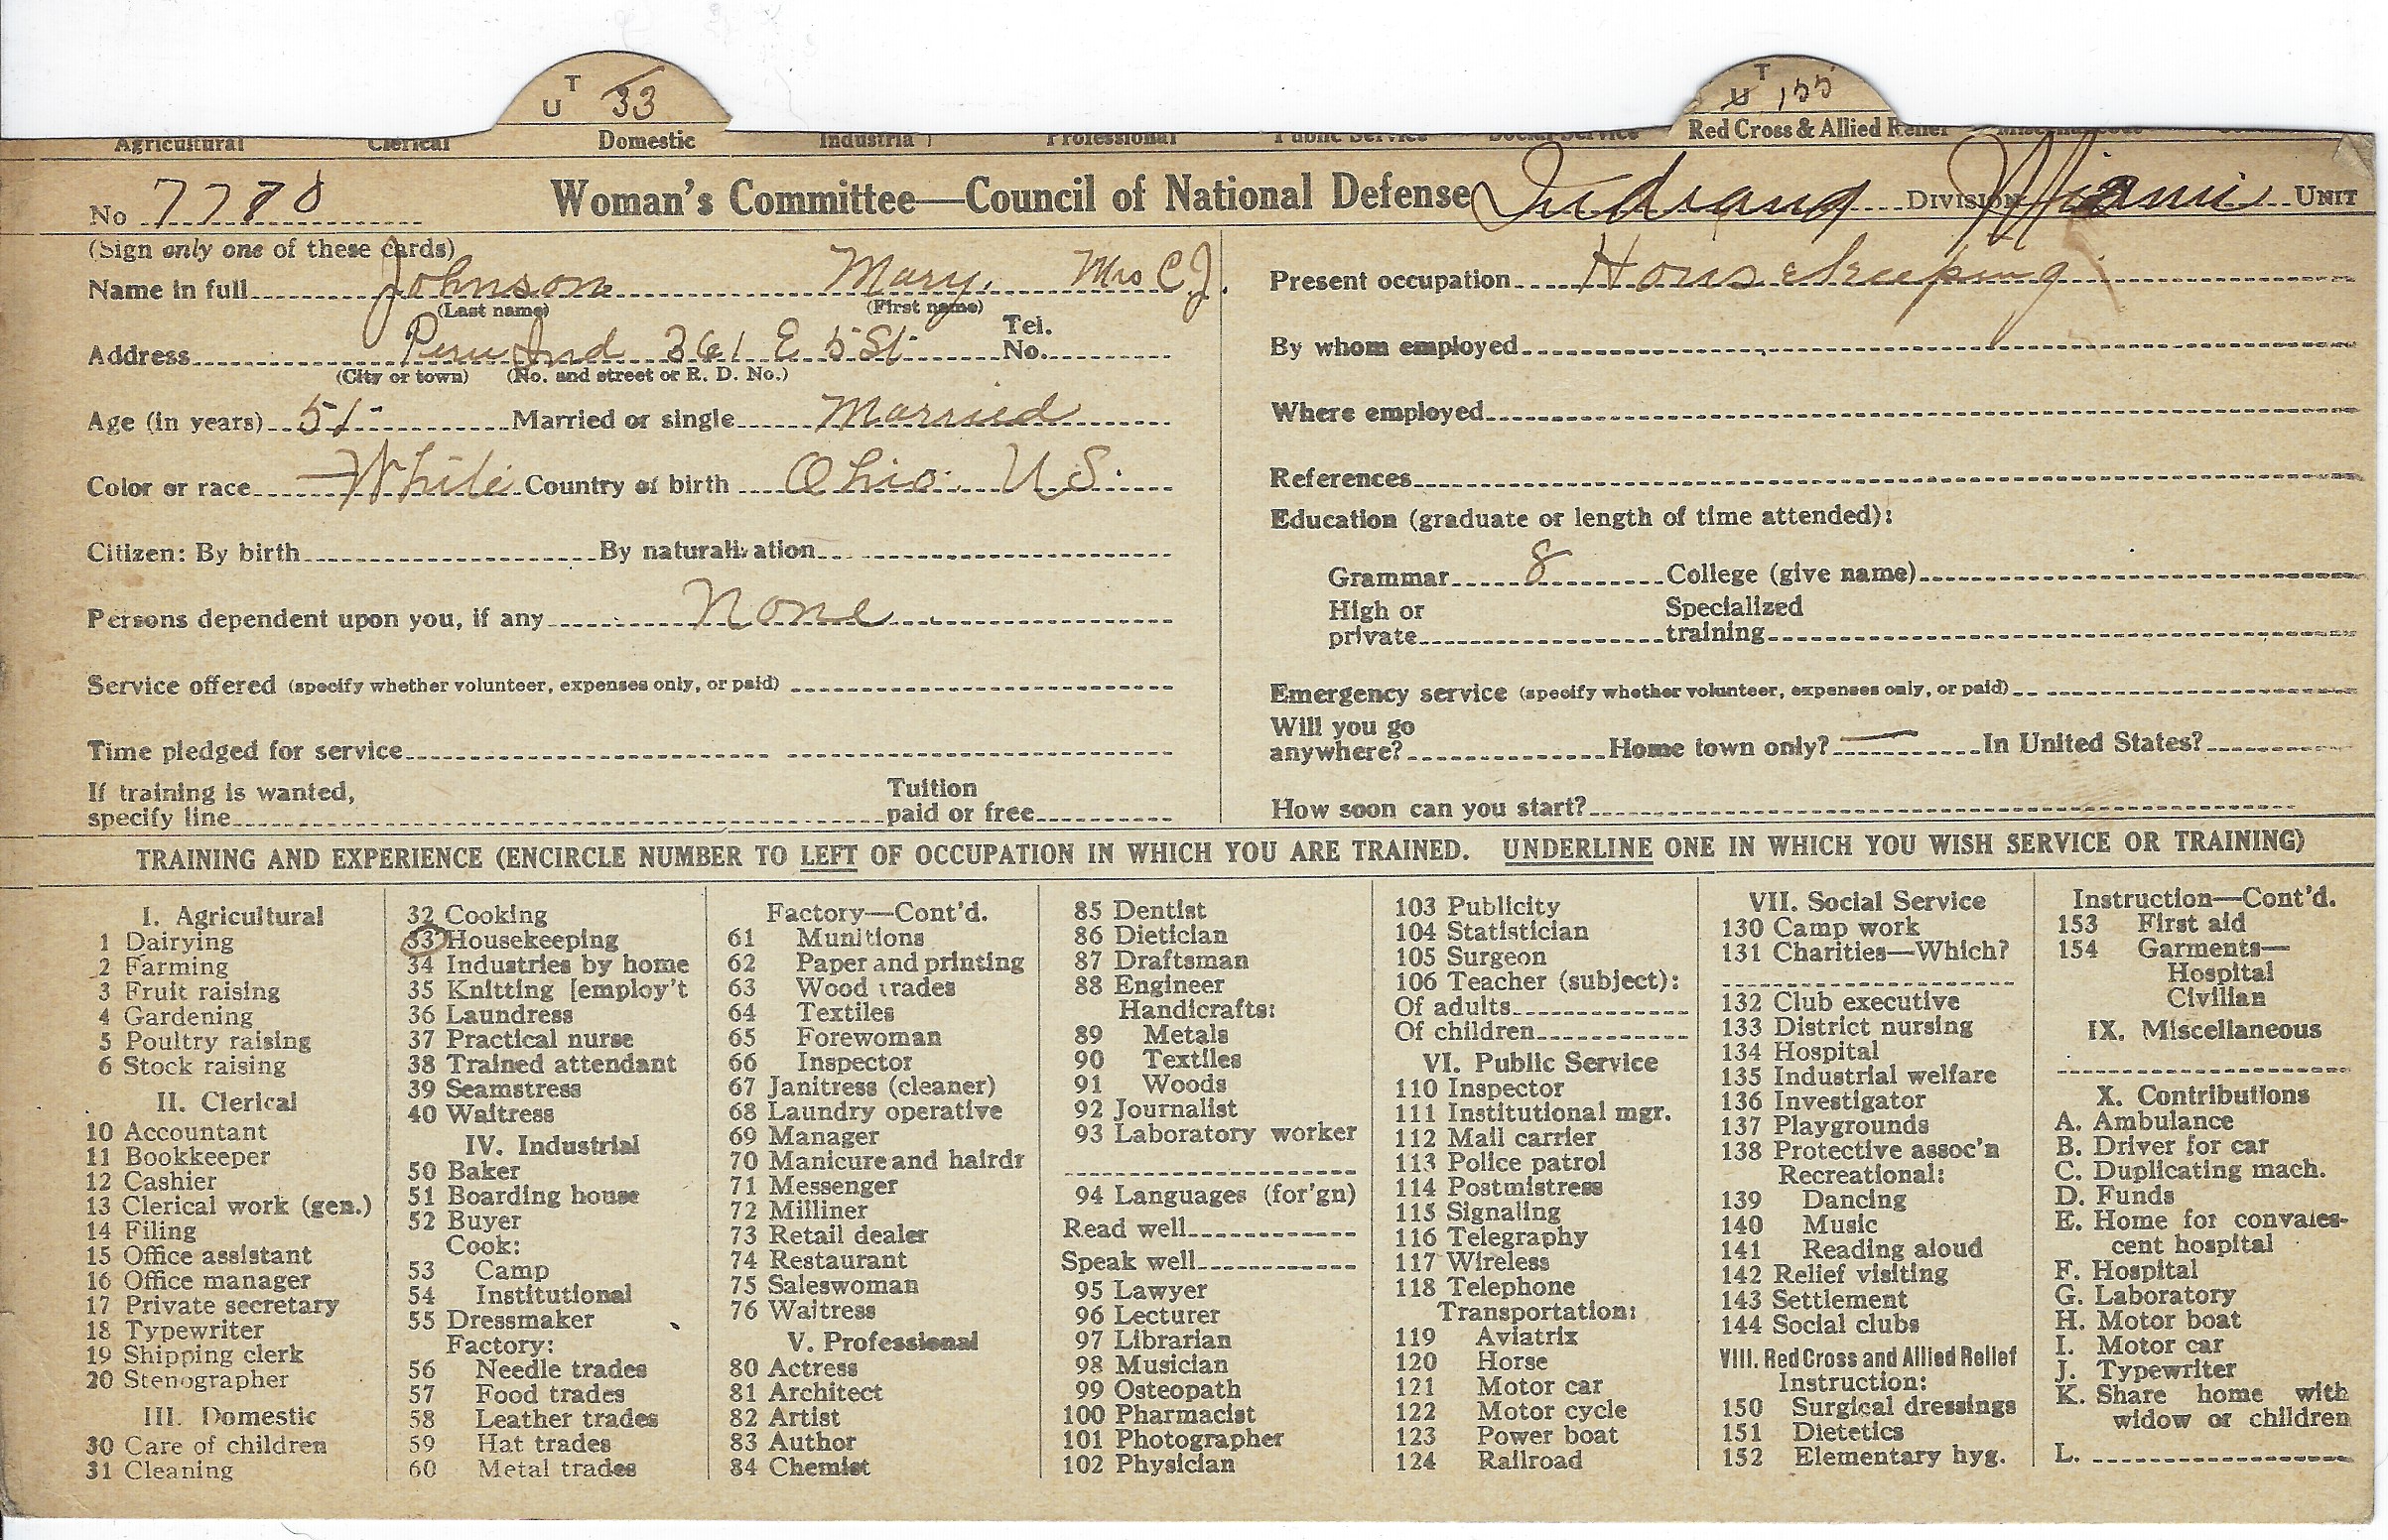 T
U 33
T
U 155
Agricultural Clerical Domestic Industrial Professional Public Service Social Service Red Cross & Allied Relief Miscellaneous
No 7780 Woman's Committee—Council of National Defense Indiana Division Miami Unit
(Sign only one of these cards)
Name in full Johnson Mary, Mrs C.J.
(Last name) (First name)
Address Peru Ind 361 E 5 St Tel. No.
(City or town) (No. and street or R. D. No.)
Age (in years) 51 Married or single Married
Color or race White Country of birth Ohio. U S.
Citizen: By birth By naturalization
Persons dependent upon you, if any None
Service offered (specify whether volunteer, expenses only, or paid)
Time pledged for service
If training is wanted, specify line Tuition paid or free
Present occupation Housekeeping
By whom employed
Where employed
References
Education (graduate or length of time attended):
Grammar 8 College (give name)
High or private Specialized training
Emergency service (specify whether volunteer, expenses only, or paid)
Will you go anywhere? Home town only? — In United States?
How soon can you start?
TRAINING AND EXPERIENCE (ENCIRCLE NUMBER TO LEFT OF OCCUPATION IN WHICH YOU ARE TRAINED. UNDERLINE ONE IN WHICH YOU WISH SERVICE OR TRAINING)
I. Agricultural
1 Dairying
2 Farming
3 Fruit raising
4 Gardening
5 Poultry raising
6 Stock raising
II. Clerical
10 Accountant
11 Bookkeeper
12 Cashier
13 Clerical work (gen.)
14 Filing
15 Office assistant
16 Office manager
17 Private secretary
18 Typewriter
19 Shipping clerk
20 Stenographer
III. Domestic
30 Care of children
31 Cleaning
32 Cooking
33 Housekeeping
34 Industries by home
35 Knitting [employ't
36 Laundress
37 Practical nurse
38 Trained attendant
39 Seamstress
40 Waitress
IV. Industrial
50 Baker
51 Boarding house
52 Buyer
Cook:
53 Camp
54 Institutional
55 Dressmaker
Factory:
56 Needle trades
57 Food trades
58 Leather trades
59 Hat trades
60 Metal trades
Factory—Cont'd.
61 Munitions
62 Paper and printing
63 Wood trades
64 Textiles
65 Forewoman
66 Inspector
67 Janitress (cleaner)
68 Laundry operative
69 Manager
70 Manicure and hairdr
71 Messenger
72 Milliner
73 Retail dealer
74 Restaurant
75 Saleswoman
76 Waitress
V. Professional
80 Actress
81 Architect
82 Artist
83 Author
84 Chemist
85 Dentist
86 Dietician
87 Draftsman
88 Engineer
Handicrafts:
89 Metals
90 Textiles
91 Woods
92 Journalist
93 Laboratory worker
94 Languages (for'gn)
Read well
Speak well
95 Lawyer
96 Lecturer
97 Librarian
98 Musician
99 Osteopath
100 Pharmacist
101 Photographer
102 Physician
103 Publicity
104 Statistician
105 Surgeon
106 Teacher (subject):
Of adults
Of children
VI. Public Service
110 Inspector
111 Institutional mgr.
112 Mail carrier
113 Police patrol
114 Postmistress
115 Signaling
116 Telegraphy
117 Wireless
118 Telephone
Transportation:
119 Aviatrix
120 Horse
121 Motor car
122 Motor cycle
123 Power boat
124 Railroad
VII. Social Service
130 Camp work
131 Charities—Which?
132 Club executive
133 District nursing
134 Hospital
135 Industrial welfare
136 Investigator
137 Playgrounds
138 Protective assoc'n
Recreational:
139 Dancing
140 Music
141 Reading aloud
142 Relief visiting
143 Settlement
144 Social clubs
VIII. Red Cross and Allied Relief
Instruction:
150 Surgical dressings
151 Dietetics
152 Elementary hyg.
Instruction—Cont'd.
153 First aid
154 Garments—
Hospital
Civilian
IX. Miscellaneous
X. Contributions
A. Ambulance
B. Driver for car
C. Duplicating mach.
D. Funds
E. Home for convales-
cent hospital
F. Hospital
G. Laboratory
H. Motor boat
I. Motor car
J. Typewriter
K. Share home with
widow or children
L.